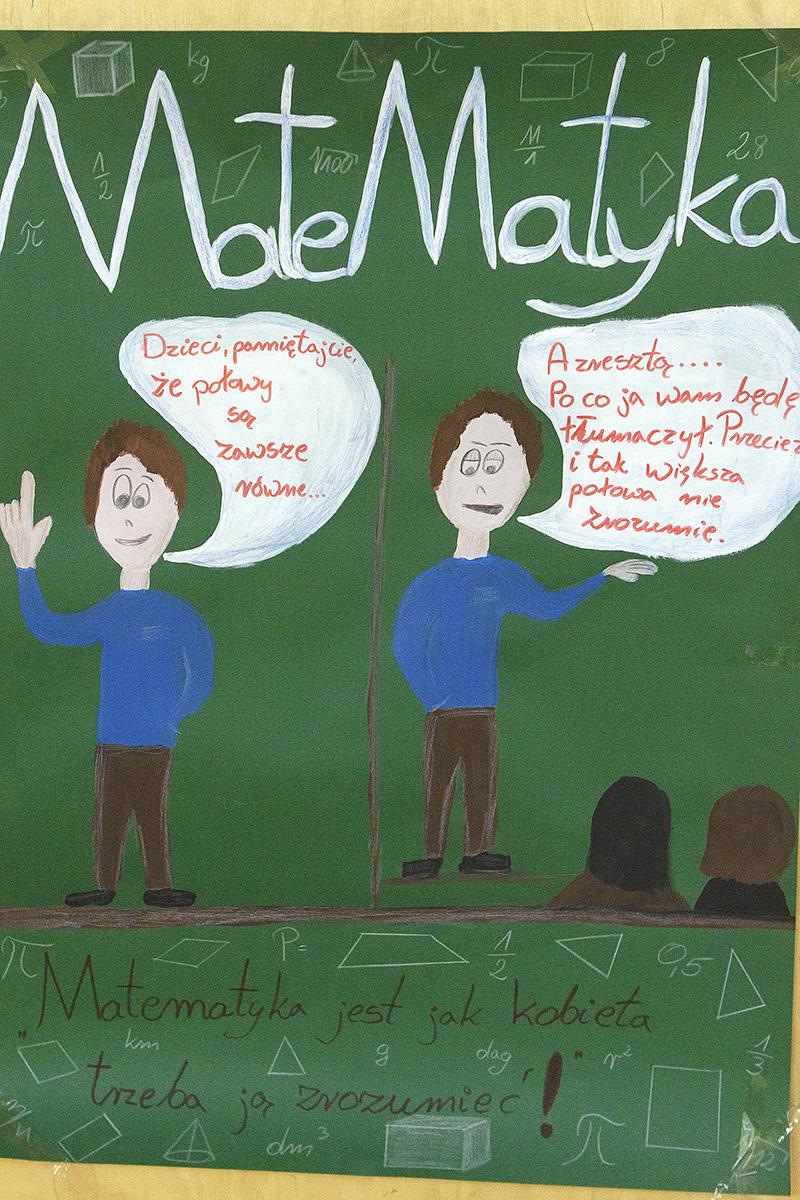 kg
π
8
MateMatyka
1/2
√100
11/1
28
π
Dzieci, pamiętajcie,
że połowy
są
zawsze
równe...
A zresztą....
Po co ja wam będę
tłumaczył. Przecież
i tak większa
połowa nie
zrozumie.
π
P=
1/2
0,5
"Matematyka jest jak kobieta
km
g
dag
r²
1/3
trzeba ją zrozumieć"!
dm³
π